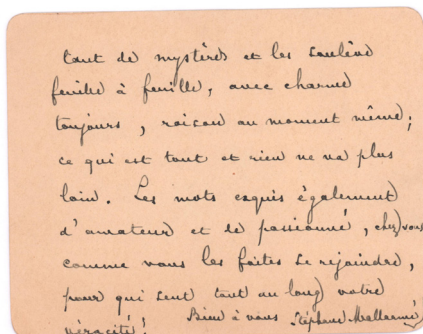 tant de mystères et les soulève
feuille à feuille, avec charme
toujours, raison au moment même;
ce qui est tout et rien ne va plus
loin. Les mots exquis également
d'amateur et de passionné, chez vous
comme vous les faites se rejoindre,
pour qui sent tout au long votre
véracité! Bien à vous Stéphane Mallarmé